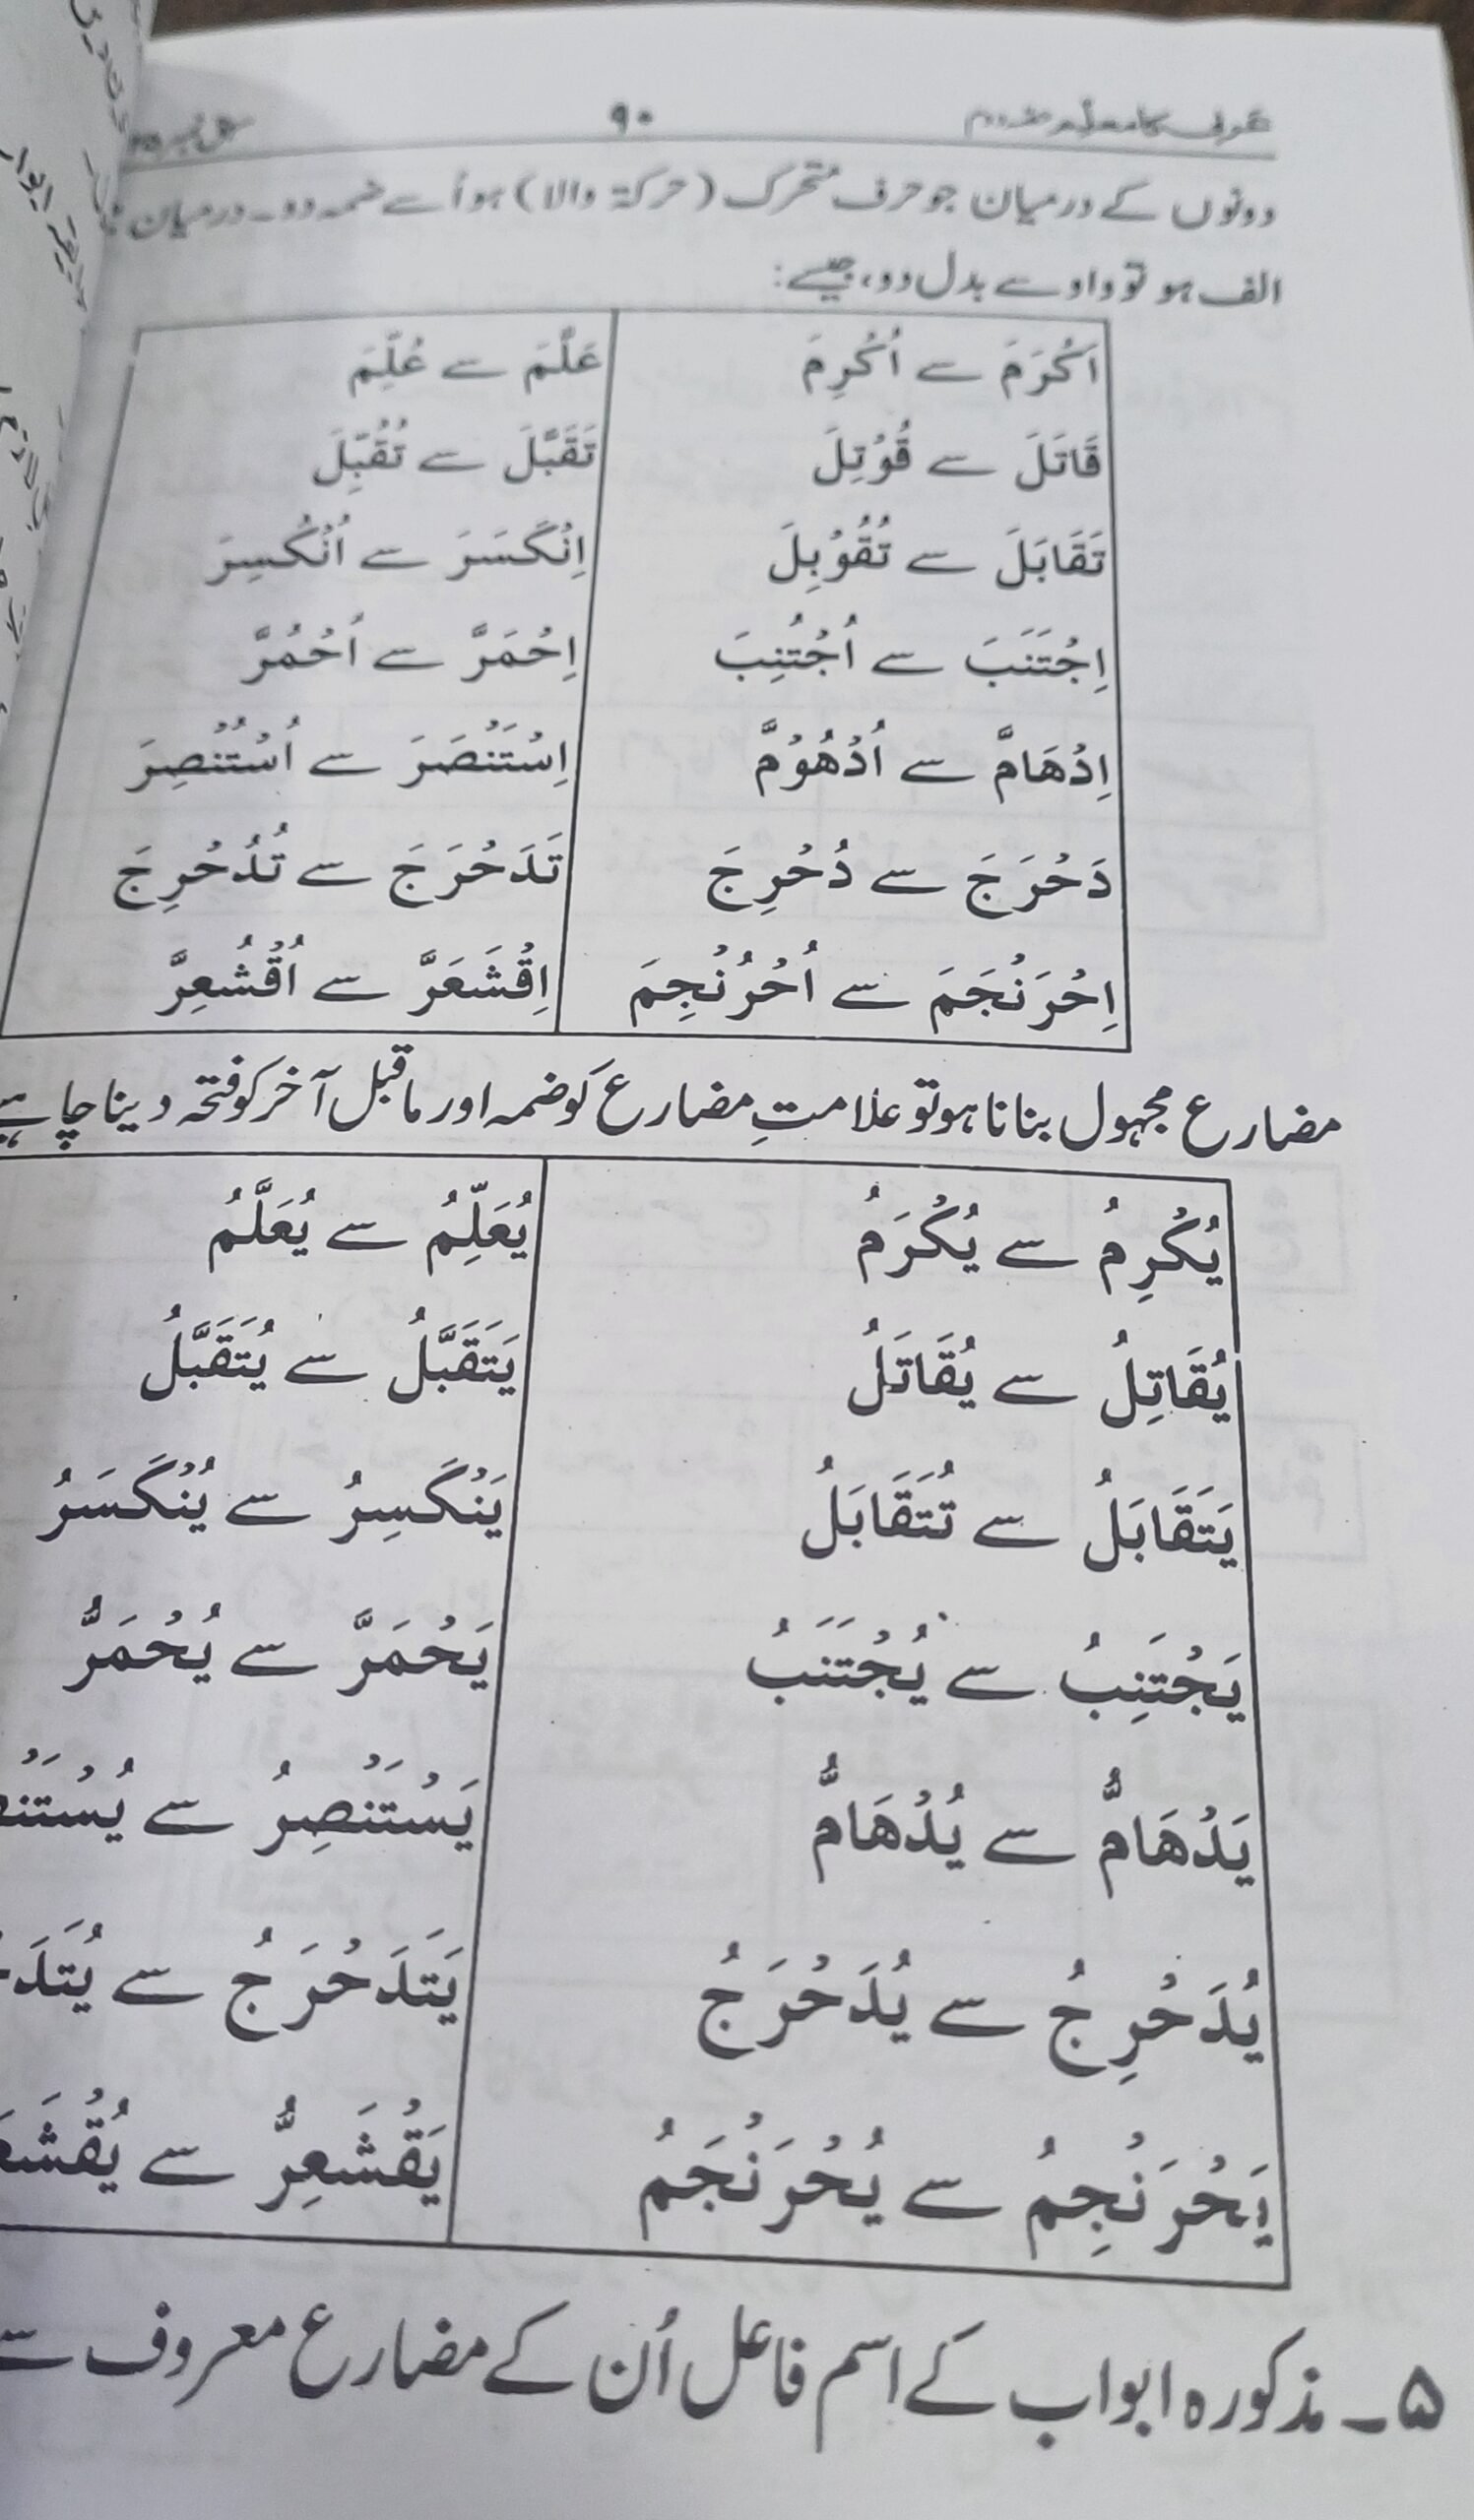 عربی کا معلم حصہ دوم ۹۰ سبق نمبر
دونوں کے درمیان جو حرف متحرک (حرکۃ والا) ہو اُسے ضمہ دو۔ درمیان
الف ہو تو واو سے بدل دو، جیسے:
اَكْرَمَ سے اُكْرِمَ عَلَّمَ سے عُلِّمَ
قَاتَلَ سے قُوْتِلَ تَقَبَّلَ سے تُقُبِّلَ
تَقَابَلَ سے تُقُوْبِلَ اِنْكَسَرَ سے اُنْكُسِرَ
اِجْتَنَبَ سے اُجْتُنِبَ اِحْمَرَّ سے اُحْمُرَّ
اِدْهَامَّ سے اُدْهُوْمَّ اِسْتَنْصَرَ سے اُسْتُنْصِرَ
دَحْرَجَ سے دُحْرِجَ تَدَحْرَجَ سے تُدُحْرِجَ
اِحْرَنْجَمَ سے اُحْرُنْجِمَ اِقْشَعَرَّ سے اُقْشُعِرَّ
مضارع مجہول بنانا ہو تو علامتِ مضارع کو ضمہ اور ماقبل آخر کو فتحہ دینا چاہیے
يُكْرِمُ سے يُكْرَمُ يُعَلِّمُ سے يُعَلَّمُ
يُقَاتِلُ سے يُقَاتَلُ يَتَقَبَّلُ سے يُتَقَبَّلُ
يَتَقَابَلُ سے تُتَقَابَلُ يَنْكَسِرُ سے يُنْكَسَرُ
يَجْتَنِبُ سے يُجْتَنَبُ يَحْمَرَّ سے يُحْمَرُّ
يَدْهَامُّ سے يُدْهَامُّ يَسْتَنْصِرُ سے
يُدَحْرِجُ سے يُدَحْرَجُ يَتَدَحْرَجُ سے
يَحْرَنْجِمُ سے يُحْرَنْجَمُ يَقْشَعِرُّ سے
۵۔ مذکورہ ابواب کے اسم فاعل اُن کے مضارع معروف سے